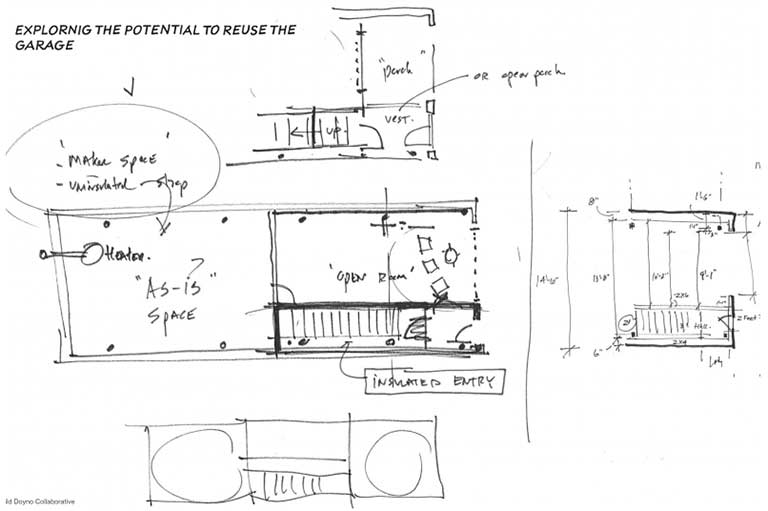 EXPLORNIG THE POTENTIAL TO REUSE THE
GARAGE
"Porch"
OR open porch
VEST.
UP.
- MAKER SPACE
- UNINSULATED - shop
Heater.
"AS-IS"
SPACE
"OPEN ROOM"
INSULATED ENTRY
8"
14'-10"
13'-8"
10'-2"
9'-1"
2x6
HALL
2 Feet
6"
2x4
ild Doyno Collaborative